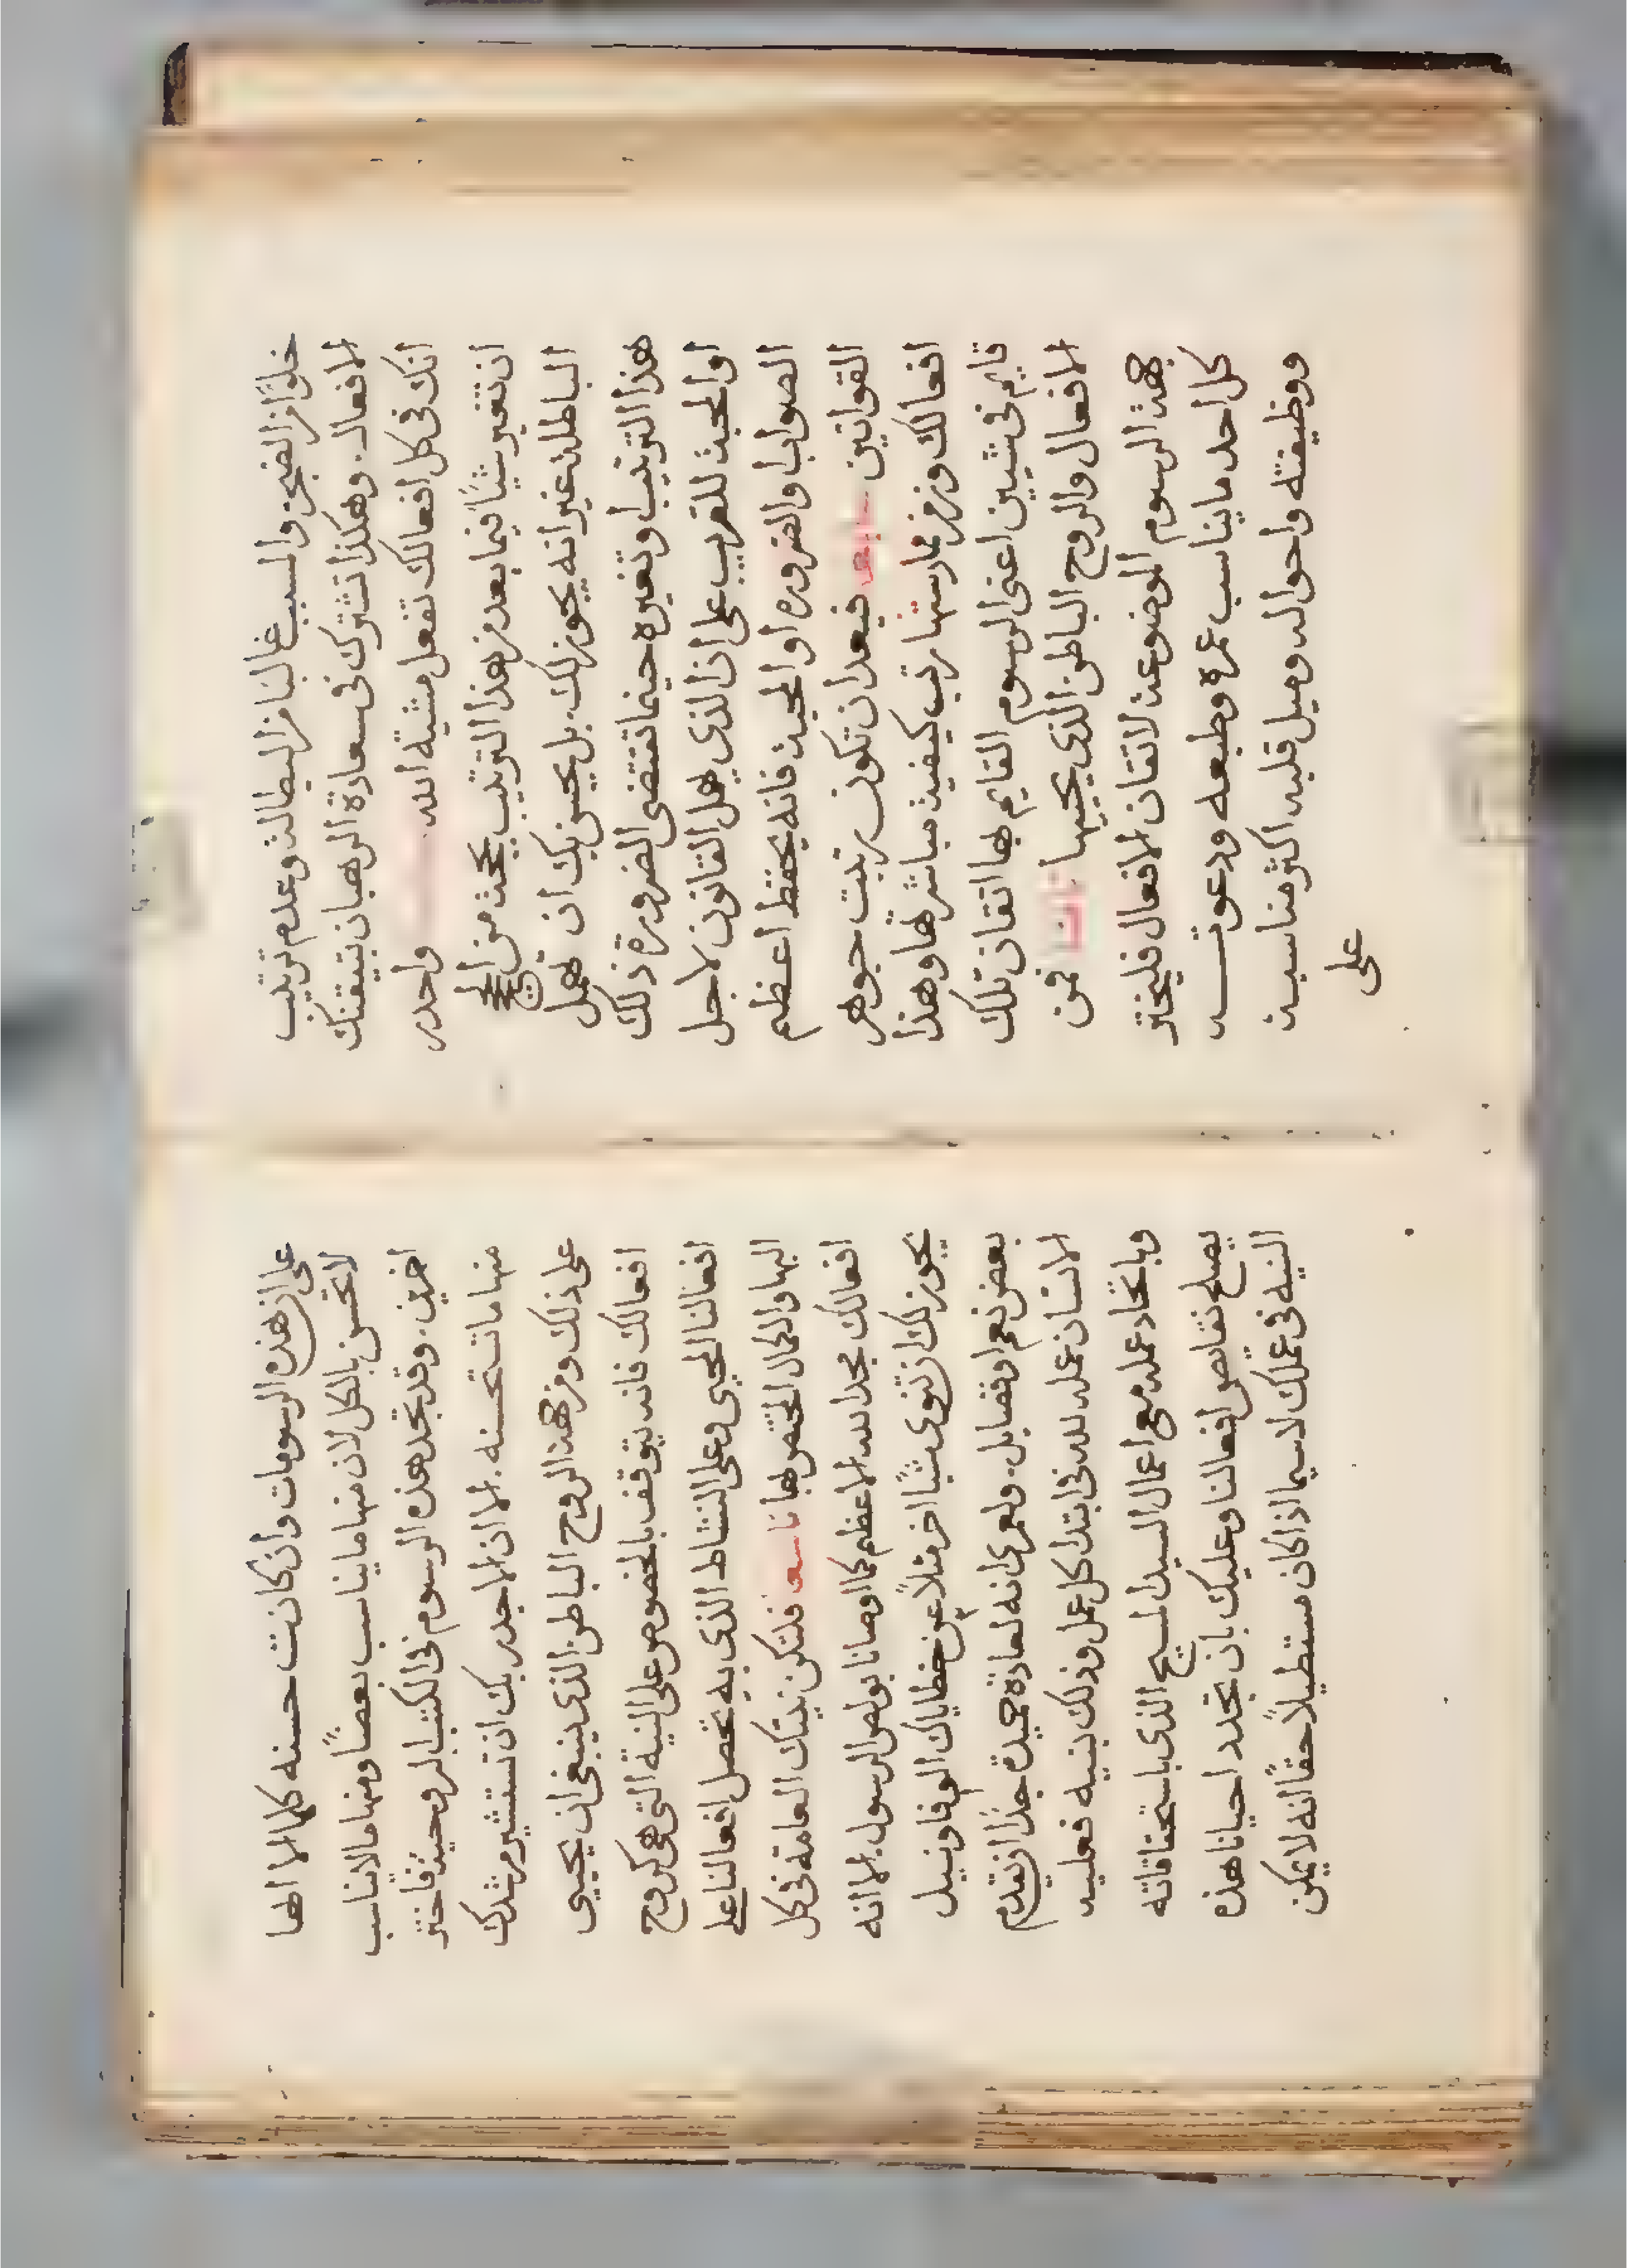 خلوًا من الضجر والمسبب غالبًا من البطالة وعدم ترتيب
الافعال. وهكذا تشترك في سعادة الرهبان بتيقنك
انك في كل افعالك تفعل مشية الله. واحدر
ان تغير شيًا فيما بعد من هذا الترتيب بحجة من الحجج
الباطله غير انه يجوز لك. بل يحسن بك ان تهمل
هذا الترتيب او تغيره حينما تقتضى الضرورة ذلك
او المحبة للقريب على ان الذي يهمل القانون لاجل
الصواب او الضروره او المحبة فانه يحفظ اعظم
القوانين فبعد ان تكون رتبت جوهر
افعالك وزمن ممارستها رتب كيفية مباشرتها وهذا
قايم في شيين اعنى الرسوم القايم بها اتقان تلك
الافعال والروح الباطن الذي يحييها فمن
جهة الرسوم الموضوعة لاتقان الافعال فليختر
كل احد ما يناسب عمره وطبعه ودعوته
ووظيفته واحواله وميل قلبه اكثر مناسبة
على
على ان هذه الرسومات وان كانت حسنه كلها الا انها
لا تحسن بالكل لان منها ما يناسب بعضًا ومنها ما لا يناسب
اخرين. وقد تجد هذه الرسوم في الكتب الروحيّة فاختر
منها ما تستحسنه. الا ان الاجدر بك ان تستشير مرشدك
على ذلك ومن جهة الروح الباطن الذي ينبغي ان يحيي
افعالك فانه يتوقف بالخصوص على النية التي هي كروح
افعالنا المحيي وعلى النشاط الذي به تحصل افعالنا على
البها والكمال المختص بها تاسعا فلتكن نيتك العامة في كل
افعالك مجد الله الاعظم كما اوصانا بولص الرسول. الا انه
يجوز لك ان تنوى شيًا اخر مثلاً عن خطاياك الوفا ونيل
بعض نعم او فضايل. ولعمرى انه لعادة حميدة جدًا ان يقدم
الانسان عمله لله في ابتدا كل عمل وذلك بنيه فعليه
وباتحاد عمله مع اعمال السيد المسيح الذي باستحقاقاته
يصلح نقايص افعالنا وعليك بان تجدد احيانا هذه
النيه في عملك لاسيما اذا كان مستطيلاً حقًا انه لا يمكن